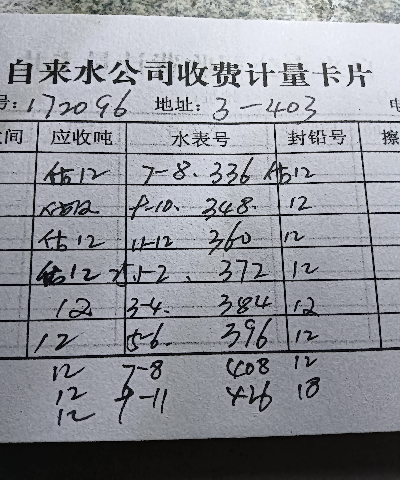 自来水公司收费计量卡片
号: 172096 地址: 3-403 电
间 应收吨 水表号 封铅号 擦
估12 7-8. 336 估12
估12 9-10. 348. 12
估12 11-12 360 12
估12 1-2. 372 12
12 3-4. 384 12
12 5-6. 396 12
12 7-8 408 12
12 9-11 426 18
12